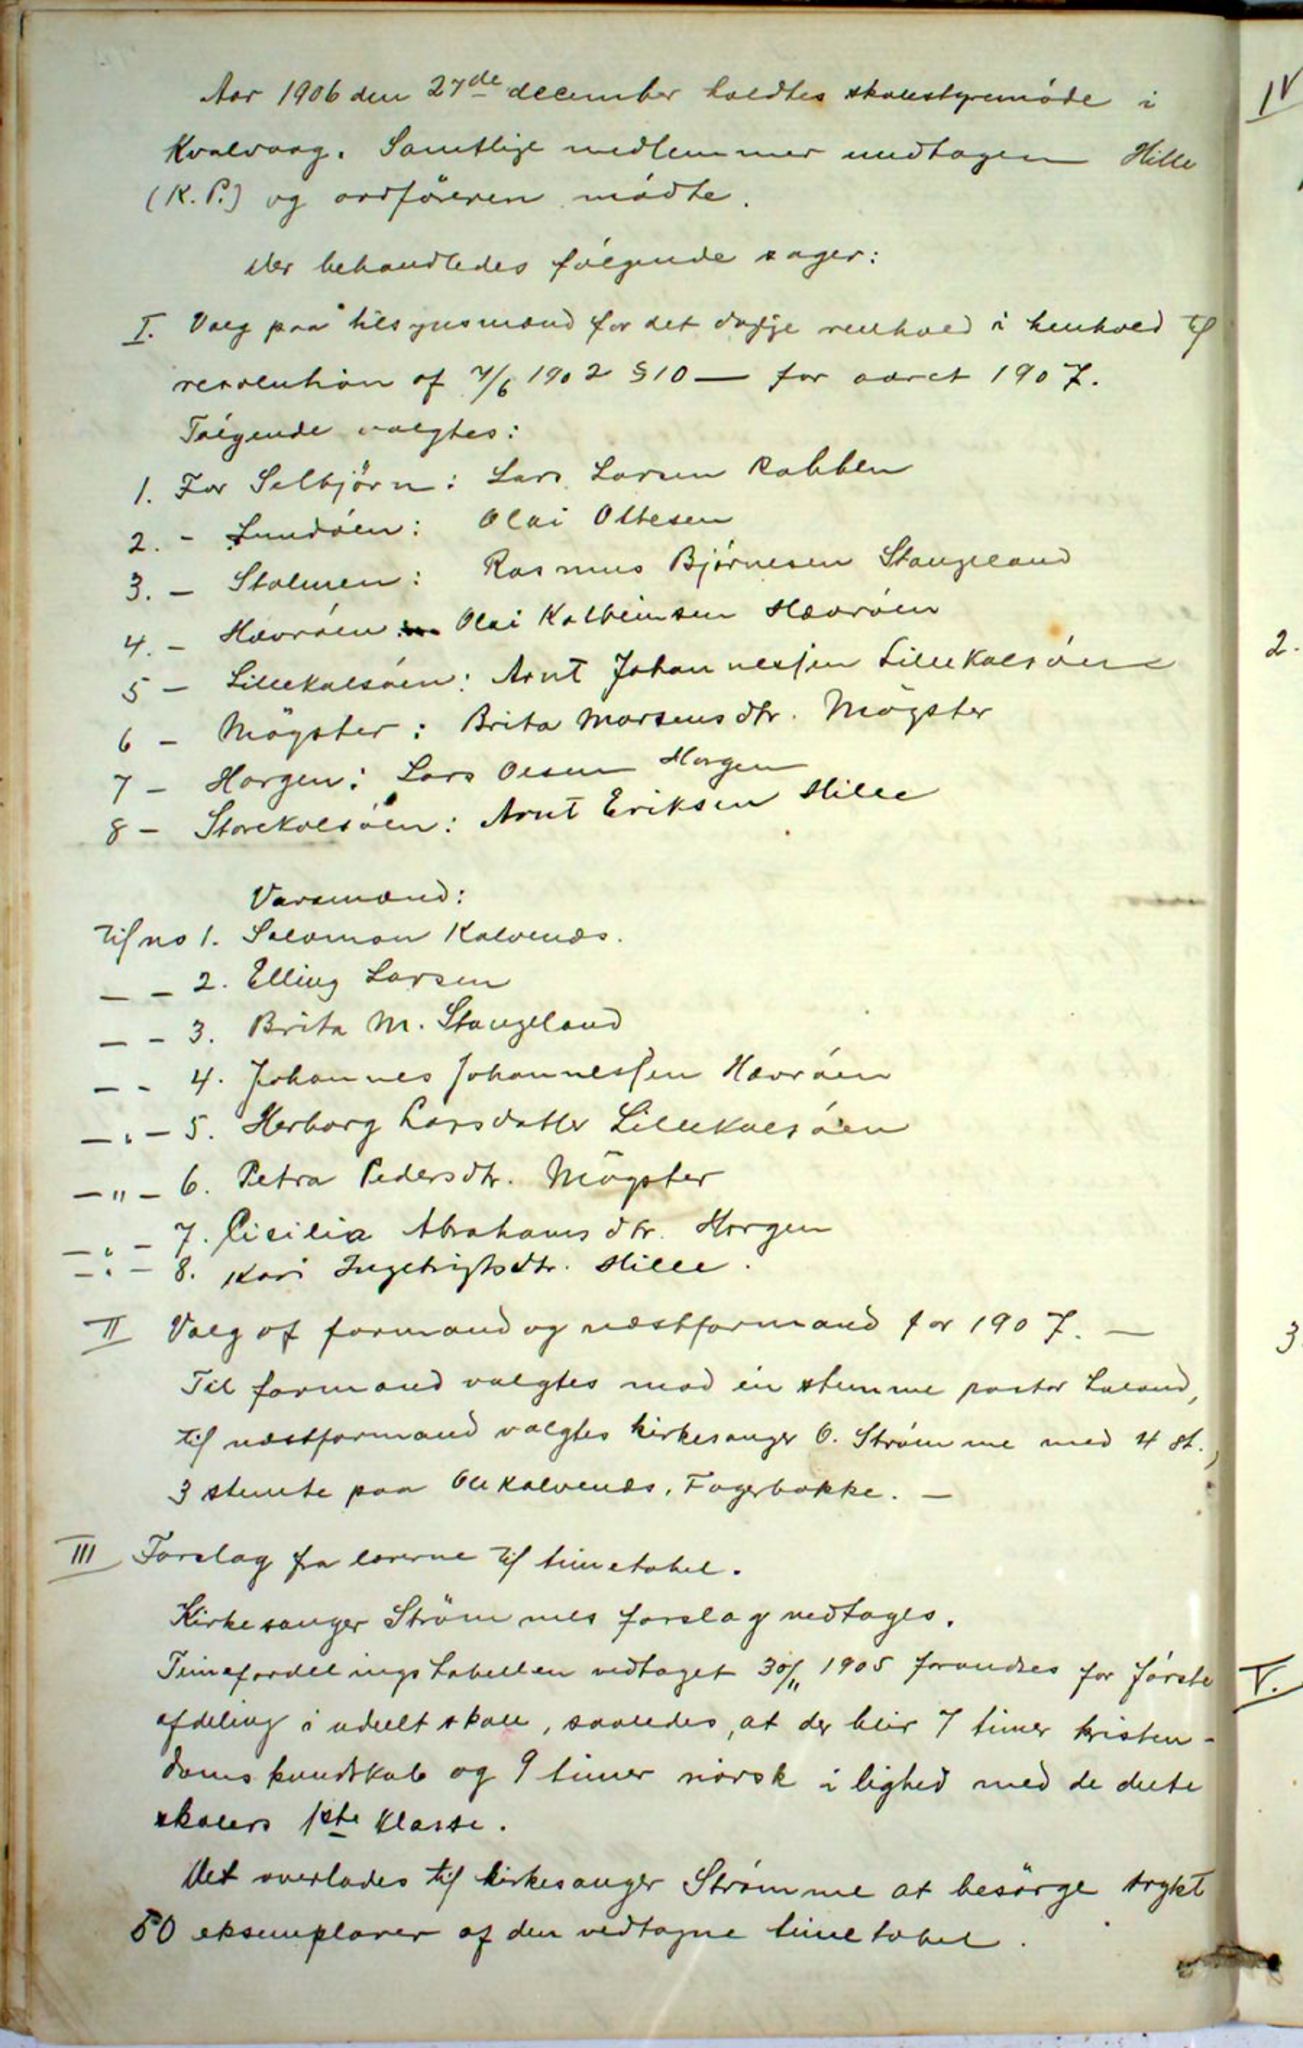 Aar 1906 den 27de december holdtes skolestyremöde i
Kvalvaag. Samtlige medlemmer undtagen Hille
(K. P.) og ordföreren mödte.
Der behandledes fölgende sager:
I. Valg paa tilsynsmænd for det daglige renhold i henhold til
resolution af 7/6 1902 § 10 — for aaret 1907.
Fölgende valgtes:
1. For Selbjörn: Lars Larsen Rabben
2. - Sundöen: Olai Oltesen
3. - Stolmen: Rasmus Björnesen Stangeland
4. - Hævröen Olai Kolbeinsen Hævröen
5 - Lillekalsöen: Arnt Johannessen Lillekalsöen
6 - Mögster: Brita Monsensdtr. Mögster
7 - Horgen: Lars Olsen Horgen
8 - Storekalsöen: Arnt Eriksen Hille
Varamænd:
Til no 1. Salomon Kalvenæs.
— - 2. Elling Larsen
— - 3. Brita M. Stangeland
— - 4. Johannes Johannessen Hævröen
— " — 5. Herborg Larsdatter Lillekalsöen
— " — 6. Petra Pedersdtr. Mögster
— " — 7. Cisilia Abrahamsdtr. Horgen
— " — 8. Kari Ingebrigtsdtr. Hille.
II Valg af formand og næstformand for 1907. —
Til formand valgtes mod én stemme pastor Laland,
til næstformand valgtes kirkesanger O. Strömme med 4 st.,
3 stemte paa Ole Kalvenæs, Fagerbakke. —
III Forslag fra lærerne til timetabel.
Kirkesanger Strömmes forslag vedtages.
Timefordelingstabellen vedtaget 30/11 1905 forandres for förste
afdeling i udelt skole, saaledes, at der blir 7 timer kristen-
domskundskab og 9 timer norsk i lighed med de delte
skolers 1ste klasse.
Det overlades til kirkesanger Strömme at besörge trykt
50 eksemplarer af den vedtagne timetabel.
IV
2.
3.
V.